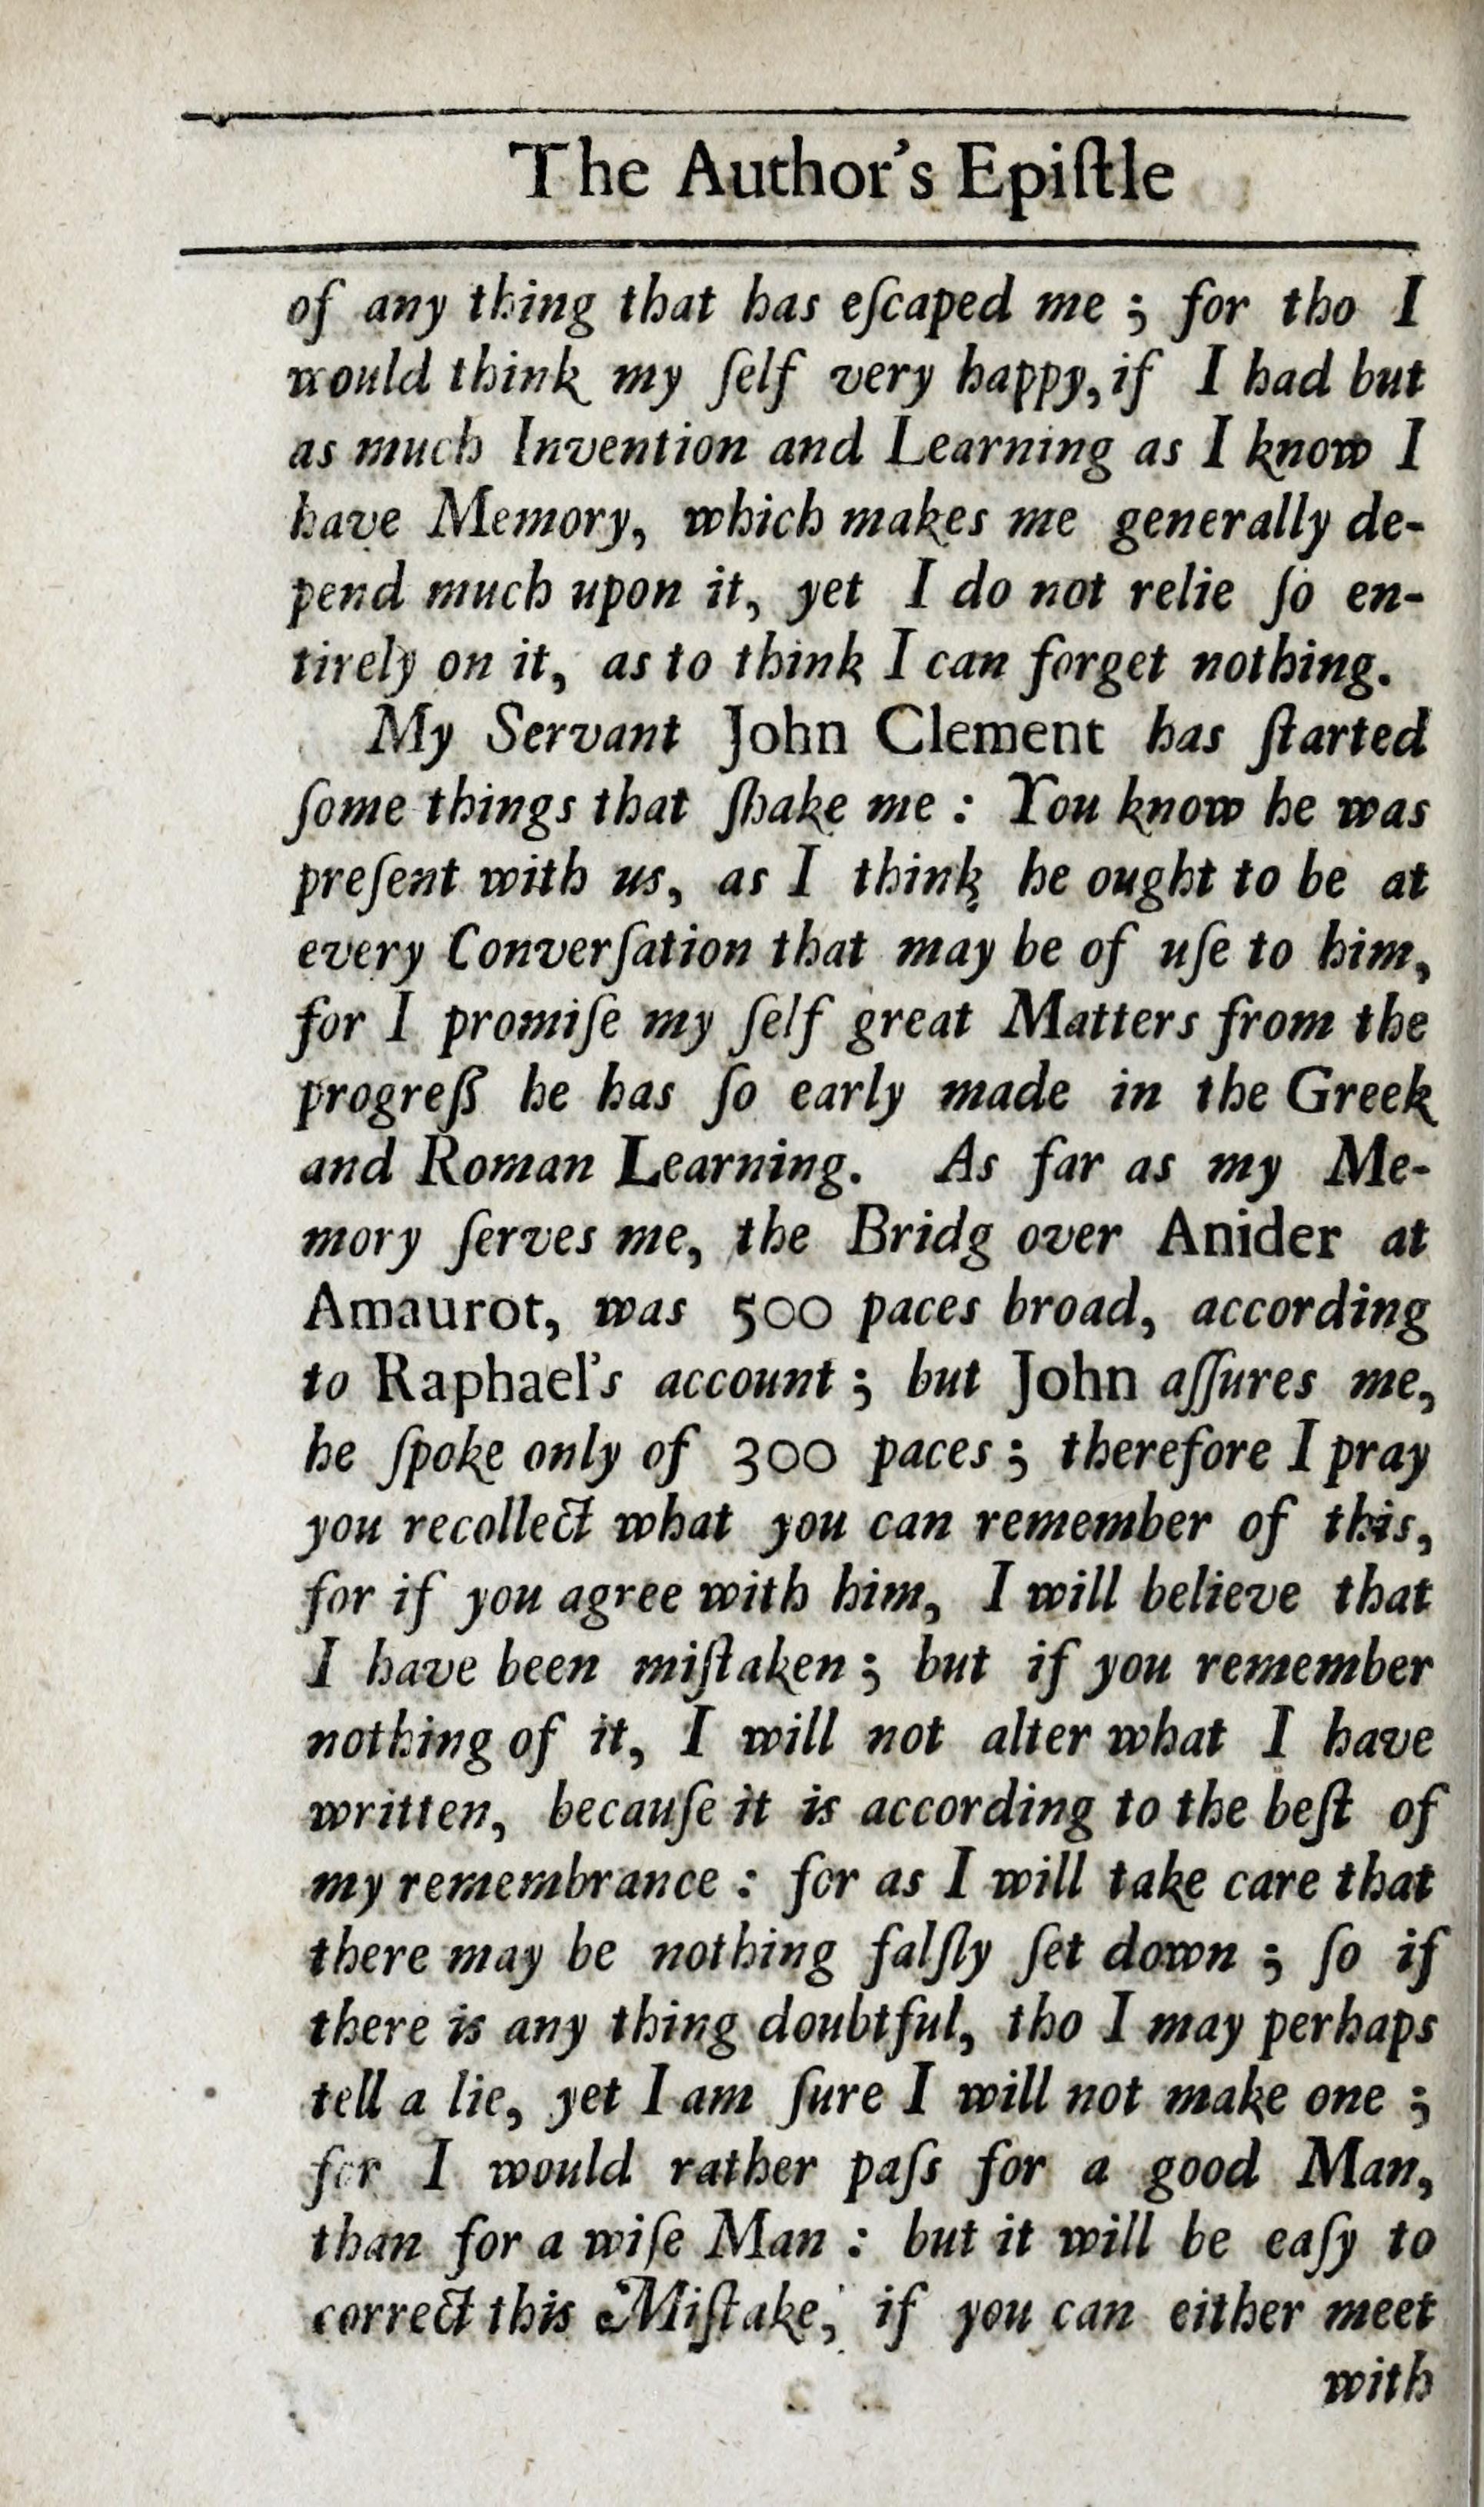 The Author's Epiſtle
of any thing that has eſcaped me ; for tho I
would think my ſelf very happy, if I had but
as much Invention and Learning as I know I
have Memory, which makes me generally de-
pend much upon it, yet I do not relie ſo en-
tirely on it, as to think I can forget nothing.
My Servant John Clement has ſtarted
ſome things that ſhake me : You know he was
preſent with us, as I think he ought to be at
every Converſation that may be of uſe to him,
for I promiſe my ſelf great Matters from the
progreß he has ſo early made in the Greek
and Roman Learning. As far as my Me-
mory ſerves me, the Bridg over Anider at
Amaurot, was 500 paces broad, according
to Raphael's account ; but John aſſures me,
he ſpoke only of 300 paces ; therefore I pray
you recollect what you can remember of this,
for if you agree with him, I will believe that
I have been miſtaken ; but if you remember
nothing of it, I will not alter what I have
written, becauſe it is according to the beſt of
my remembrance : for as I will take care that
there may be nothing falſly ſet down ; ſo if
there is any thing doubtful, tho I may perhaps
tell a lie, yet I am ſure I will not make one ;
for I would rather paſs for a good Man,
than for a wiſe Man : but it will be eaſy to
correct this Miſtake, if you can either meet
with